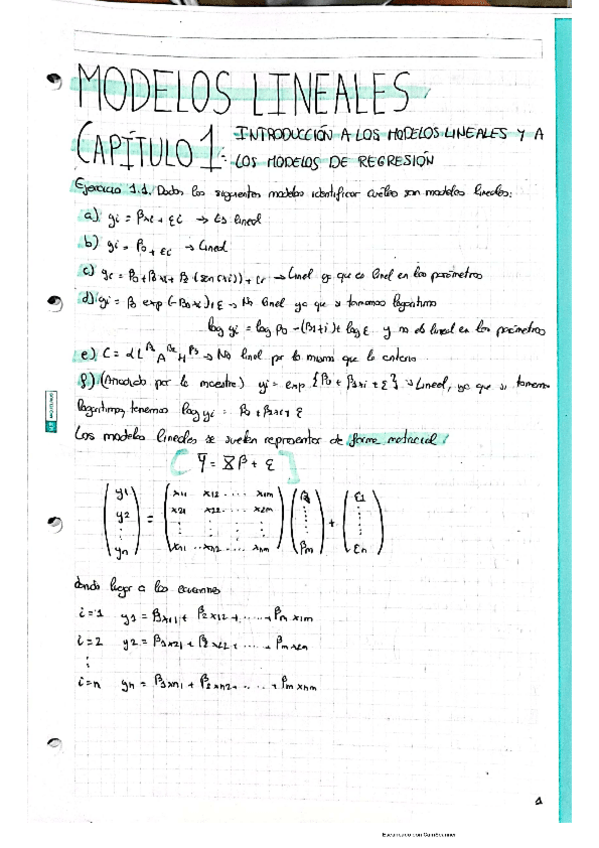 MODELOS LINEALES
CAPÍTULO 1: INTRODUCCIÓN A LOS MODELOS LINEALES Y A
LOS MODELOS DE REGRESIÓN
Ejercicio 1.1. Dados los siguientes modelos identificar cuáles son modelos lineales:
a) yi = βxi + εi → Es lineal
b) yi = β0 + εi → Lineal
c) yi = β0 + β1xi + β2 (sen(xi)) + εi → Lineal ya que es lineal en los parámetros
d) yi = β0 exp(-β1xi) εi → No lineal ya que si tomamos logaritmo
log yi = log β0 - (β1+i) + log ε y no es lineal en los parámetros
e) C = αL^β1 A^β2 H^β3 → No lineal por lo mismo que la anterior
f) (Añadido por la maestra) yi = exp {β0 + β1xi + ε} → Lineal, ya que si tomamos
logaritmos, tenemos log yi = β0 + β1xi + ε
Los modelos lineales se suelen representar de forma matricial:
Y = Xβ + ε
y1 x11 x12 .... x1m β1 ε1
y2 = x21 x22 .... x2m + 
yn xn1 .. xn2 .... xnm βm εn
dando lugar a las ecuaciones
i=1 y1 = β1x11 + β2x12 + ..... + βm x1m
i=2 y2 = β1x21 + β2x22 + ..... + βm x2m
i=n yn = β1xn1 + β2xn2 + ..... + βm xnm
1
Escaneado con CamScanner